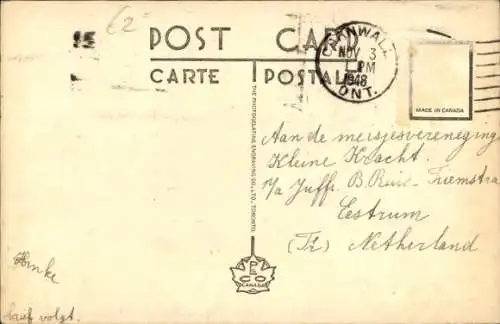 £2
15
POST CARD
CARTE POSTALE
CORNWALL
NOV 3
PM
1948
ONT.
MADE IN CANADA
THE PHOTOGELATINE ENGRAVING CO., LTD., TORONTO
PECO
CANADA
Aan de meisjesvereneging
Kleine Kracht.
p/a Juffr. B. Riemstra
Eestrum
(Fr) Netherland
Hinke
brief volgt.